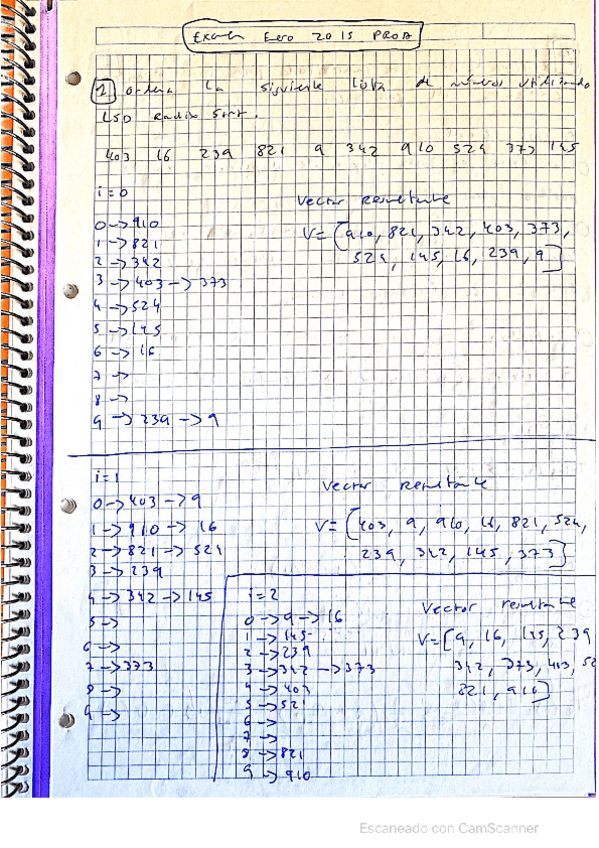 Examen Enero 2015 PROA
1 ordena la siguiente lista de números utilizando
LSD Radix Sort.
403 16 239 821 9 342 910 524 373 145
i=0
Vector Resultante
0->910
V=[910, 821, 342, 403, 373,
1->821
524, 145, 16, 239, 9]
2->342
3->403->373
4->524
5->145
6->16
7->
8->
9->239->9
i=1
Vector resultante
0->403->9
1->910->16
V=[403, 9, 910, 16, 821, 524,
2->821->524
239, 342, 145, 373]
3->239
4->342->145
5->
6->
7->373
8->
9->
i=2
Vector resultante
0->9->16
1->145
V=[9, 16, 145, 239
2->239
3->342->373
342, 373, 403, 52
4->403
821, 910]
5->521
6->
7->
8->821
9->910
Escaneado con CamScanner